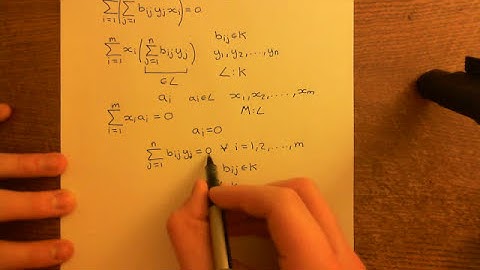 ∑_{i=1}^{m} (∑_{j=1}^{n} b_{ij} y_j x_i) = 0
∑_{i=1}^{m} x_i (∑_{j=1}^{n} b_{ij} y_j) b_{ij} ∈ K
y_1, y_2, ..., y_n
∈ L L : K
a_i a_i ∈ L x_1, x_2, ..., x_m
∑_{i=1}^{m} x_i a_i = 0 M : L
a_i = 0
∑_{j=1}^{n} b_{ij} y_j = 0 ∀ i = 1, 2, ..., m
b_{ij} ∈ K